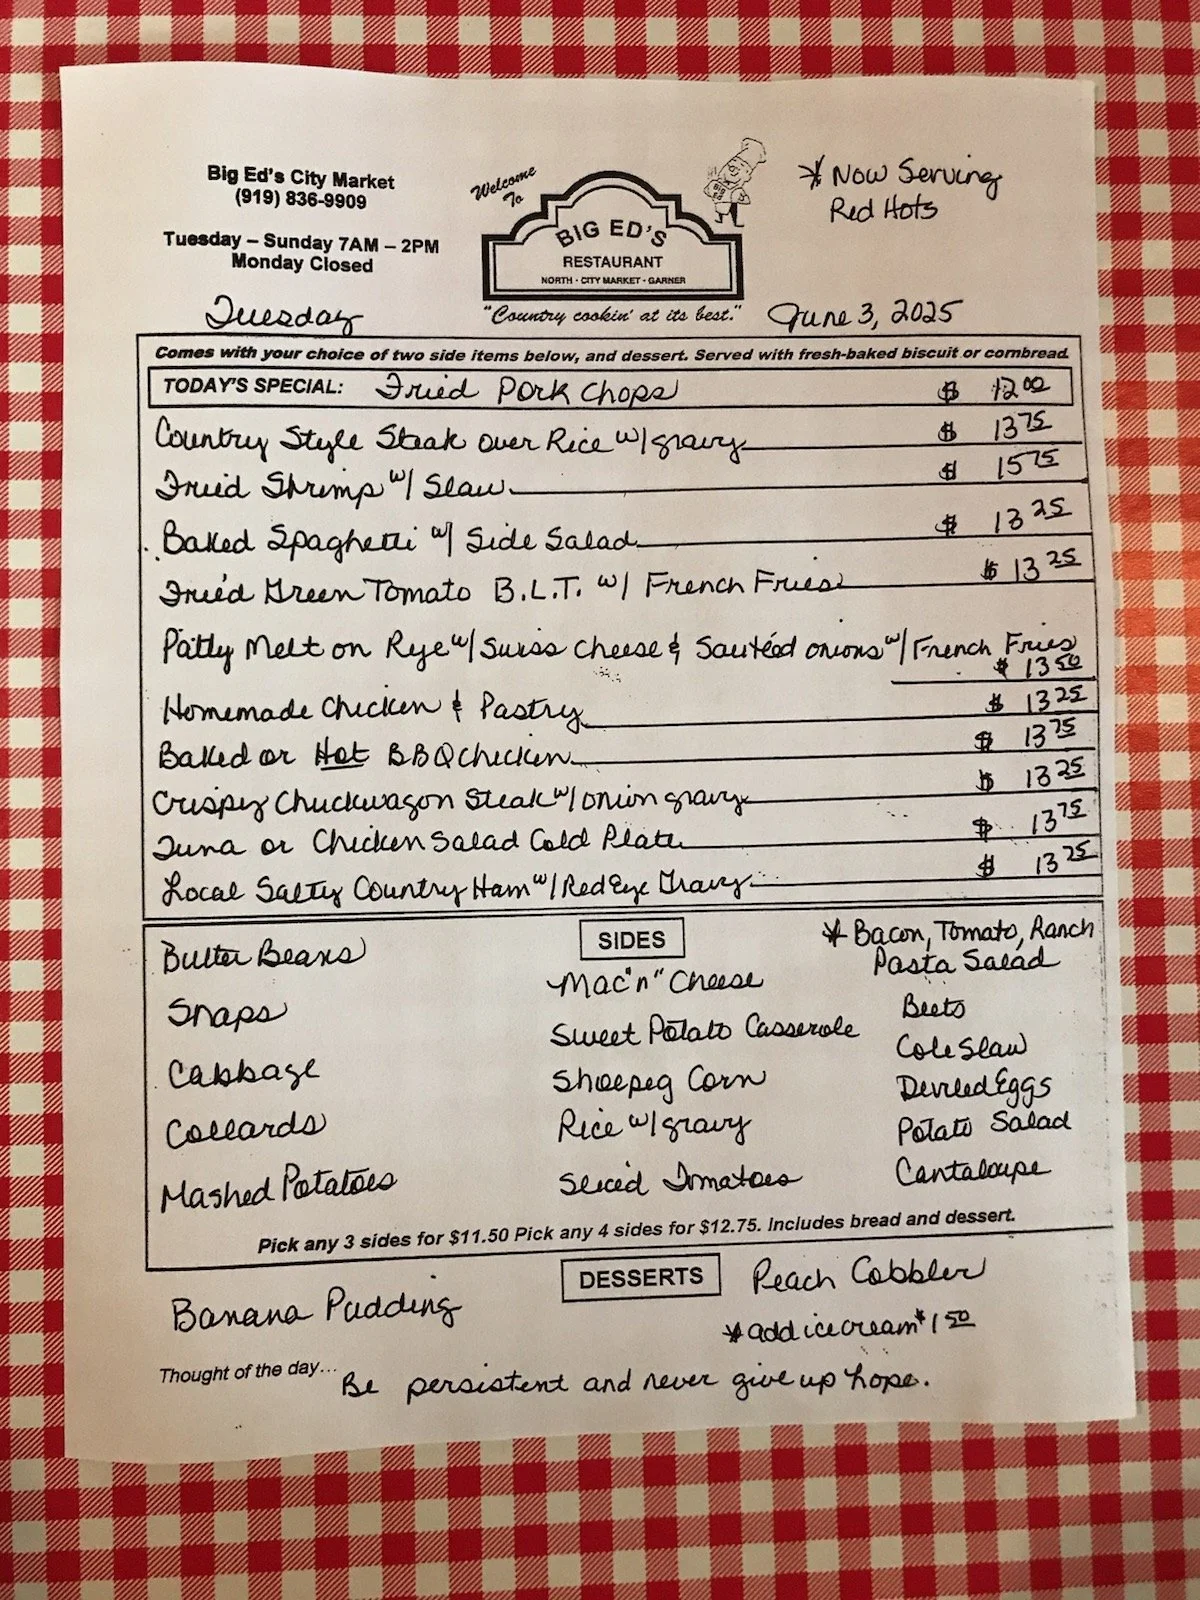 Big Ed's City Market
(919) 836-9909
Tuesday – Sunday 7AM – 2PM
Monday Closed
Welcome
To
BIG ED'S
RESTAURANT
NORTH · CITY MARKET · GARNER
"Country cookin' at its best."
* Now Serving
Red Hots
Tuesday
June 3, 2025
Comes with your choice of two side items below, and dessert. Served with fresh-baked biscuit or cornbread.
TODAY'S SPECIAL: Fried Pork Chops $ 12.00
Country Style Steak over Rice w/ gravy $ 13.75
Fried Shrimp w/ Slaw $ 15.75
Baked Spaghetti w/ Side Salad $ 13.25
Fried Green Tomato B.L.T. w/ French Fries $ 13.25
Patty Melt on Rye w/ Swiss Cheese & Sautéed onions w/ French Fries
$ 13.50
Homemade Chicken & Pastry $ 13.25
Baked or Hot BBQ Chicken $ 13.75
Crispy Chuckwagon Steak w/ onion gravy $ 13.25
Tuna or Chicken Salad Cold Plate $ 13.75
Local Salty Country Ham w/ Red Eye Gravy $ 13.25
SIDES
Butter Beans
Snaps
Cabbage
Collards
Mashed Potatoes
Mac "n" Cheese
Sweet Potato Casserole
Shoepeg Corn
Rice w/ gravy
Sliced Tomatoes
* Bacon, Tomato, Ranch
Pasta Salad
Beets
Cole Slaw
Deviled Eggs
Potato Salad
Cantaloupe
Pick any 3 sides for $11.50 Pick any 4 sides for $12.75. Includes bread and dessert.
DESSERTS
Banana Pudding
Peach Cobbler
* add ice cream $1.50
Thought of the day... Be persistent and never give up hope.